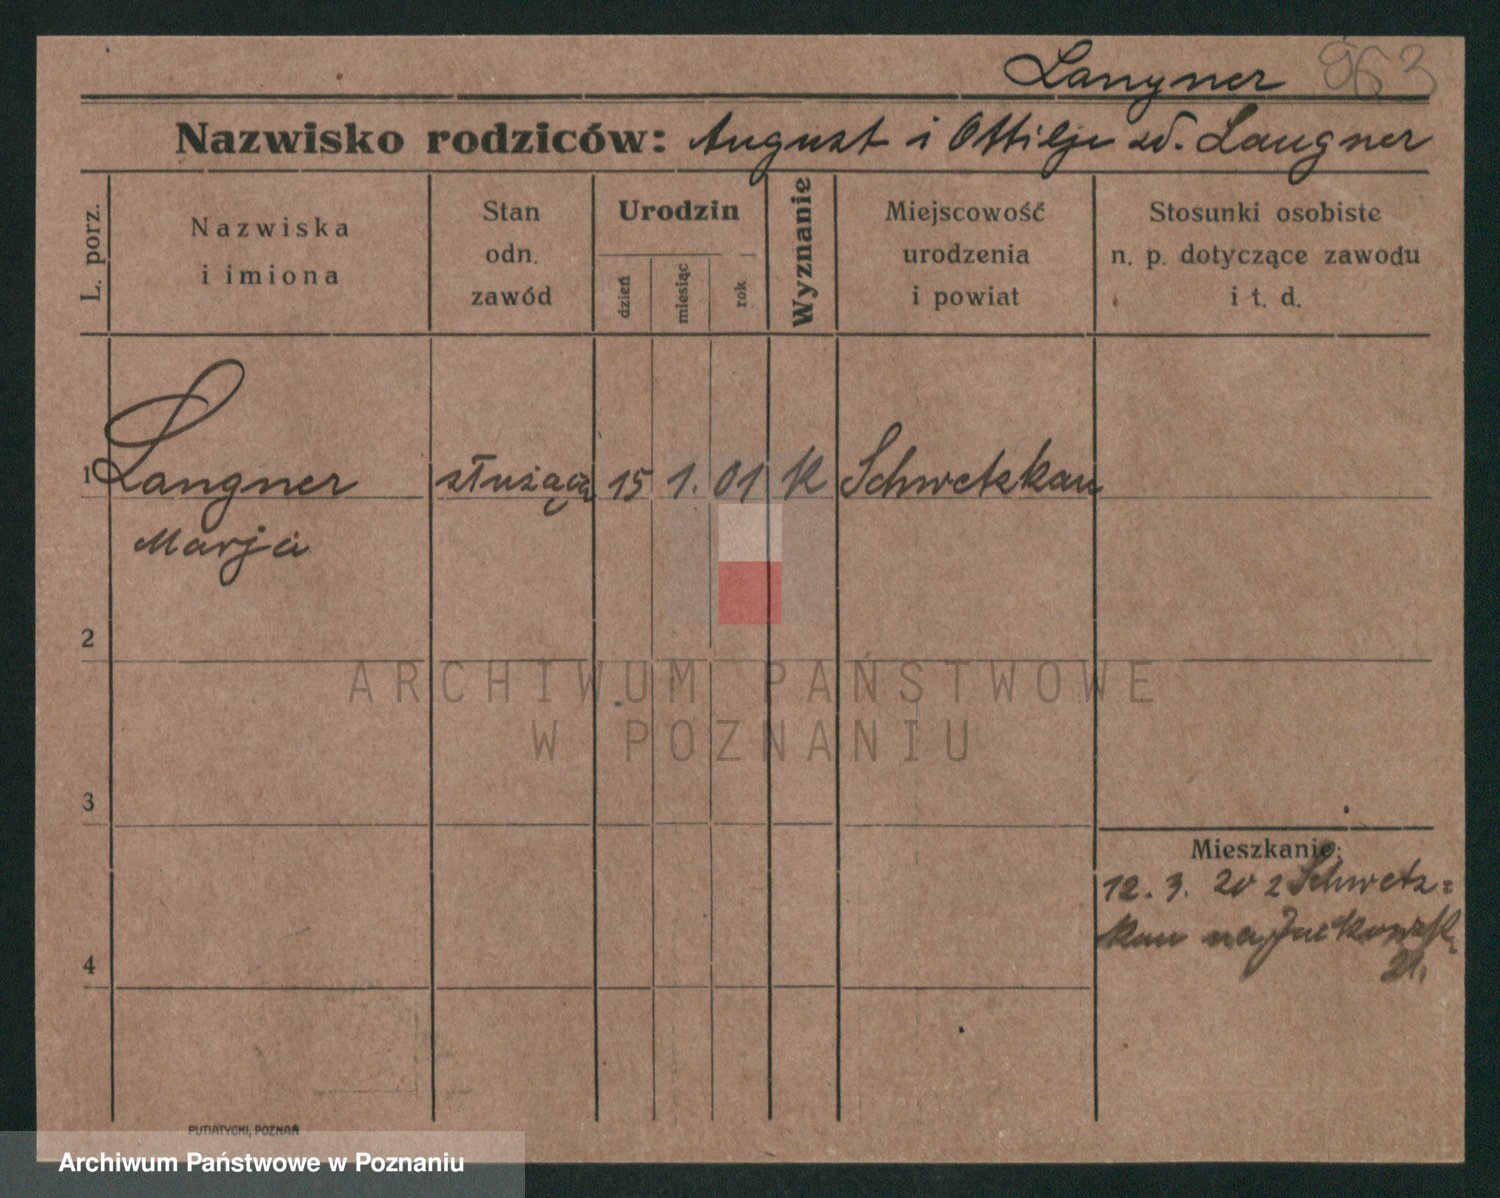 Langner 963
Nazwisko rodziców: August i Ottilje zd. Langner
L. porz.
Nazwiska
i imiona
Stan
odn.
zawód
Urodzin
dzień
miesiąc
rok
Wyznanie
Miejscowość
urodzenia
i powiat
Stosunki osobiste
n. p. dotyczące zawodu
i t. d.
1 Langner służąca 15 1. 01 K Schwetzkau
Marja
2
ARCHIWUM PAŃSTWOWE
W POZNANIU
3
Mieszkanie:
12. 3. 20 z Schwetz=
kau na Jackowsk.
21.
4
PUTIATYCKI, POZNAŃ
Archiwum Państwowe w Poznaniu